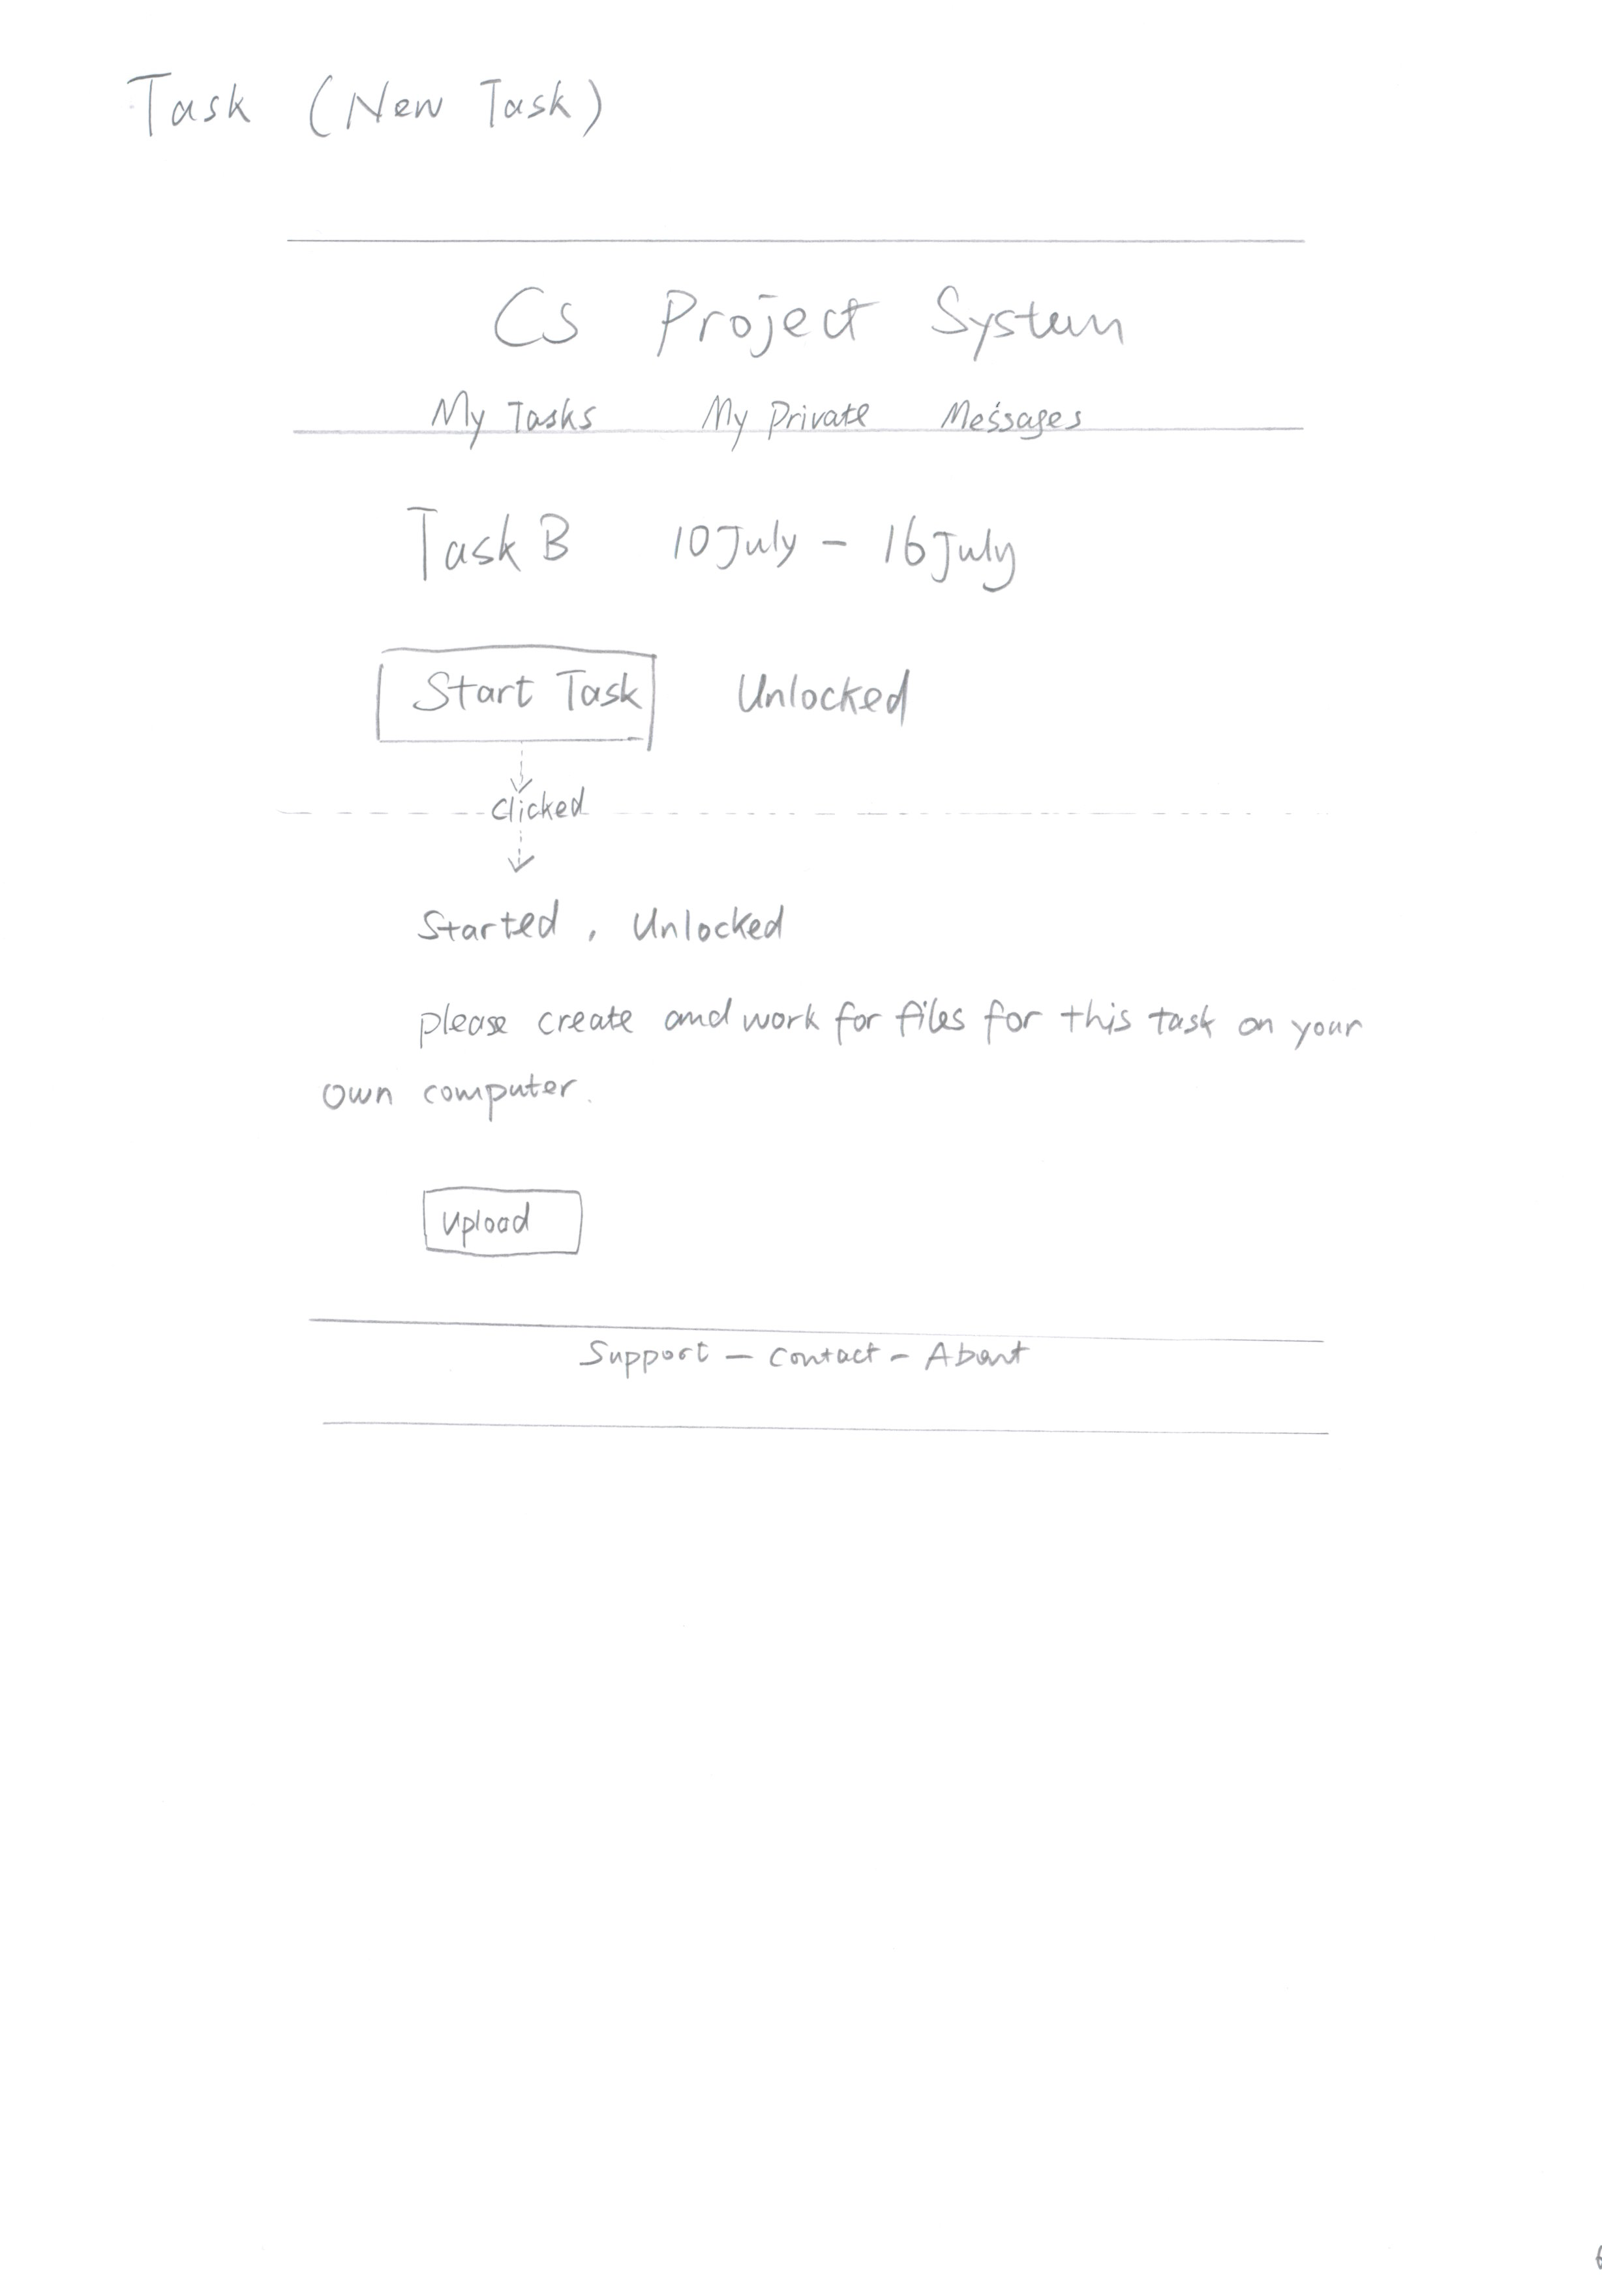 Task (New Task)
Cs Project System
My Tasks My Private Messages
Task B 10 July - 16 July
Start Task Unlocked
clicked
Started, Unlocked
please create and work for files for this task on your
own computer.
upload
Support - Contact - About